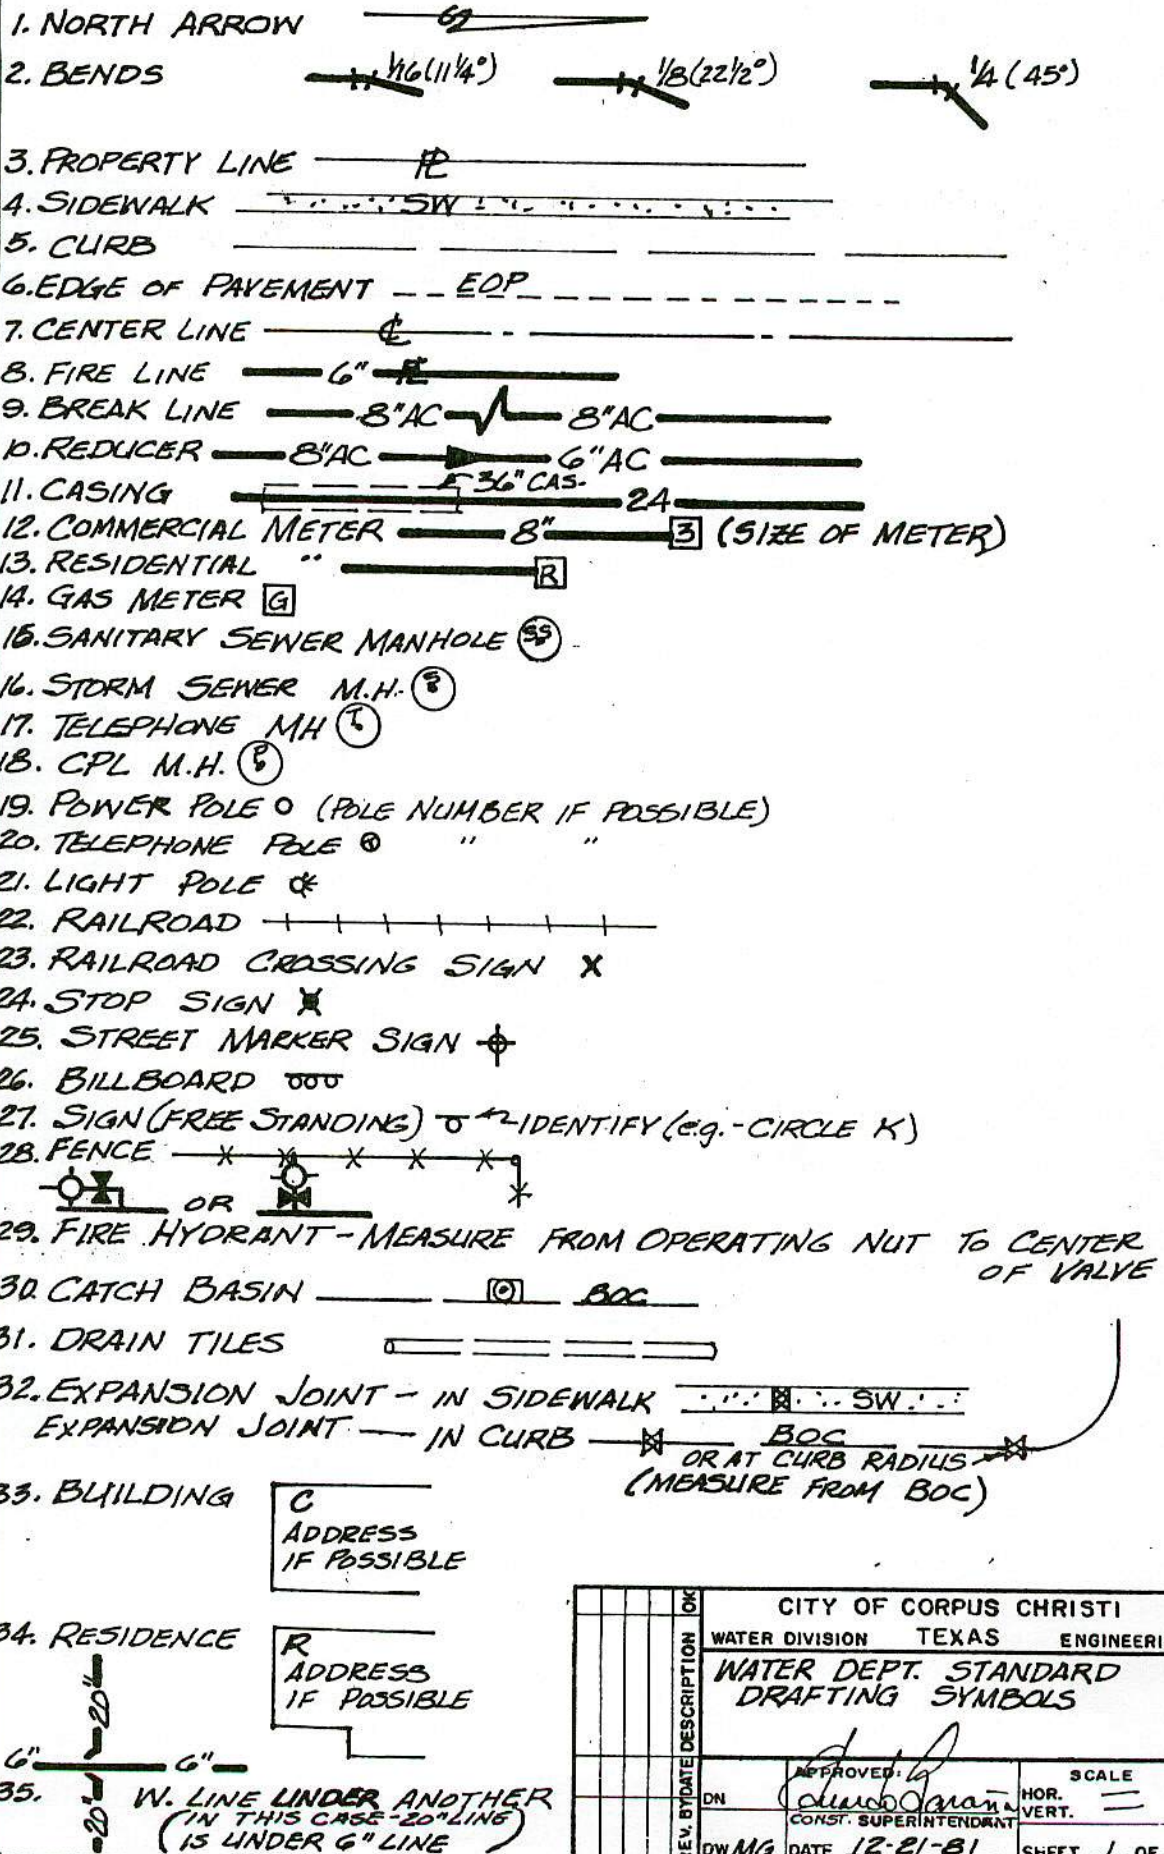 1. NORTH ARROW
2. BENDS 1/16 (11 1/4°) 1/8 (22 1/2°) 1/4 (45°)
3. PROPERTY LINE PL
4. SIDEWALK SW
5. CURB
6. EDGE OF PAVEMENT EOP
7. CENTER LINE CL
8. FIRE LINE 6" FL
9. BREAK LINE 8"AC 8"AC
10. REDUCER 8"AC 6"AC
11. CASING 36" CAS- 24
12. COMMERCIAL METER 8" 3 (SIZE OF METER)
13. RESIDENTIAL " R
14. GAS METER G
15. SANITARY SEWER MANHOLE SS
16. STORM SEWER M.H. S
17. TELEPHONE MH T
18. CPL M.H. P
19. POWER POLE (POLE NUMBER IF POSSIBLE)
20. TELEPHONE POLE " "
21. LIGHT POLE
22. RAILROAD
23. RAILROAD CROSSING SIGN X
24. STOP SIGN
25. STREET MARKER SIGN
26. BILLBOARD
27. SIGN (FREE STANDING) IDENTIFY (e.g.-CIRCLE K)
28. FENCE
OR
29. FIRE HYDRANT - MEASURE FROM OPERATING NUT TO CENTER
OF VALVE
30. CATCH BASIN BOC
31. DRAIN TILES
32. EXPANSION JOINT - IN SIDEWALK SW
EXPANSION JOINT - IN CURB BOC
OR AT CURB RADIUS
(MEASURE FROM BOC)
33. BUILDING C
ADDRESS
IF POSSIBLE
34. RESIDENCE R
ADDRESS
IF POSSIBLE
20"
6" 6"
35. W. LINE UNDER ANOTHER
20" (IN THIS CASE-20" LINE)
IS UNDER 6" LINE
REV. BY DATE DESCRIPTION OK
CITY OF CORPUS CHRISTI
WATER DIVISION TEXAS ENGINEERI
WATER DEPT. STANDARD
DRAFTING SYMBOLS
APPROVED: SCALE
DN HOR.
CONST. SUPERINTENDANT VERT.
DW MG DATE 12-21-81 SHEET 1 OF